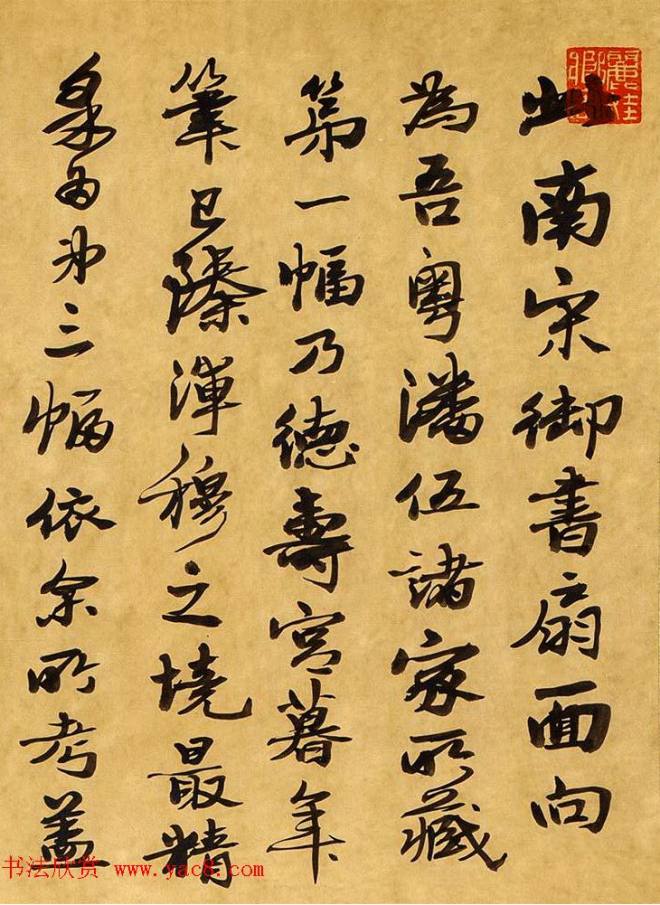 此南宋御書扇面向
為吾粵潘伍諸家所藏
第一幅乃德壽宮暮年
筆已臻渾穆之境最精
采而弟三幅依余所考蓋
书法欣赏 www.yac8.com